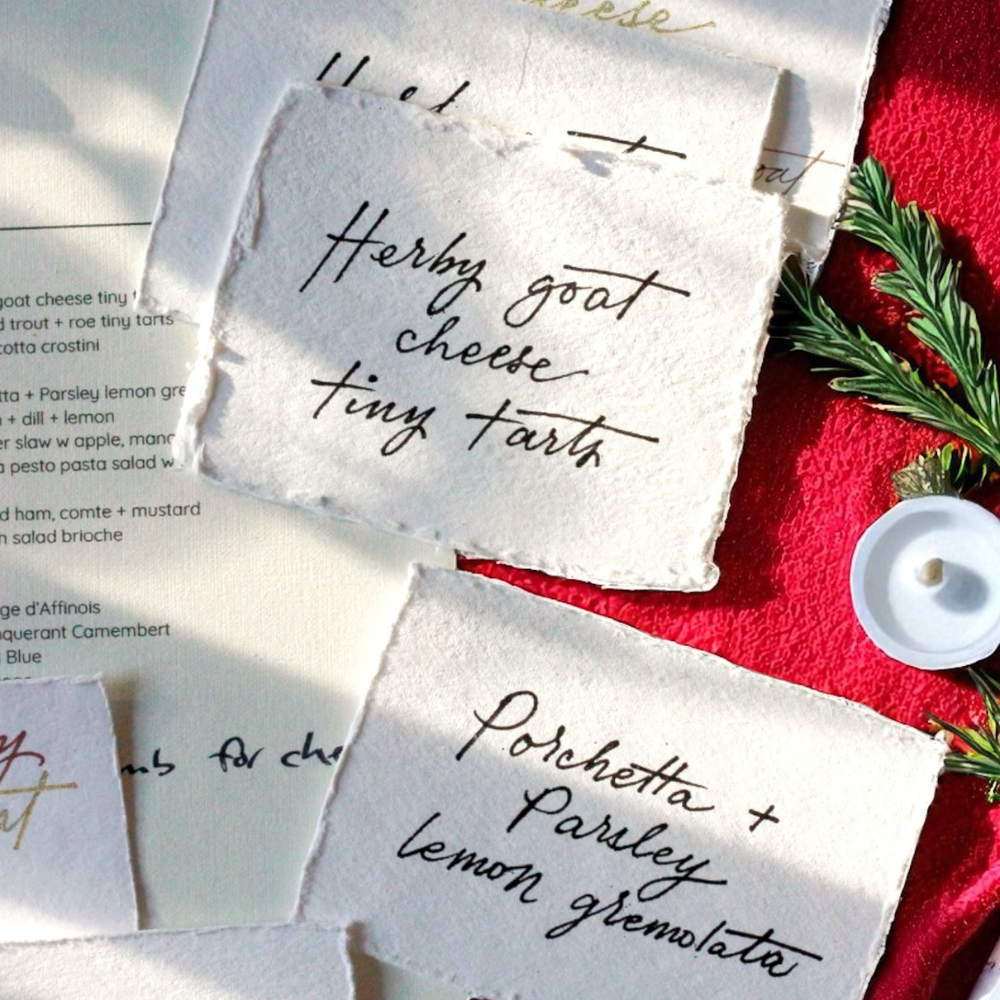 cheese
oat
Herby goat
cheese
tiny tarts
goat cheese tiny
trout + roe tiny tarts
crostini
+ Parsley lemon
+ dill + lemon
slaw w apple,
pesto pasta salad w
ham, comte + mustard
salad brioche
d'Affinois
Camembert
Blue
for
Porchetta +
Parsley
lemon gremolata